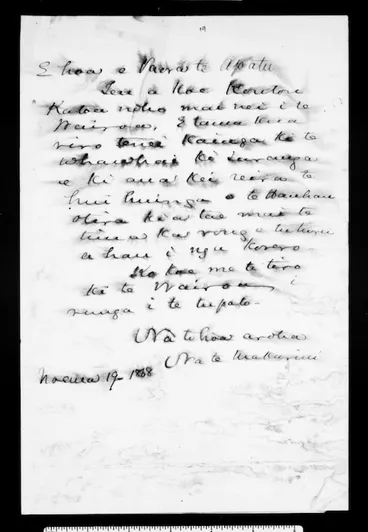 E hoa e Paora te Apatu
Tena a koe koutou
Katoa noho mai nei i te
Wairoa, E tama kua
riro tenei Kainga ki te
whawhai ki Turanga
e ki ana kei reira te
hui huinga o te Hauhau
otira kia tae mai te
tino a ka rongo tuturu
ahau i nga Korero
Ko koe me te tiro
ki te Wairoa i
runga i te tupato-
Na to hoa aroha
Na te Makarini
Noema 19- 1868